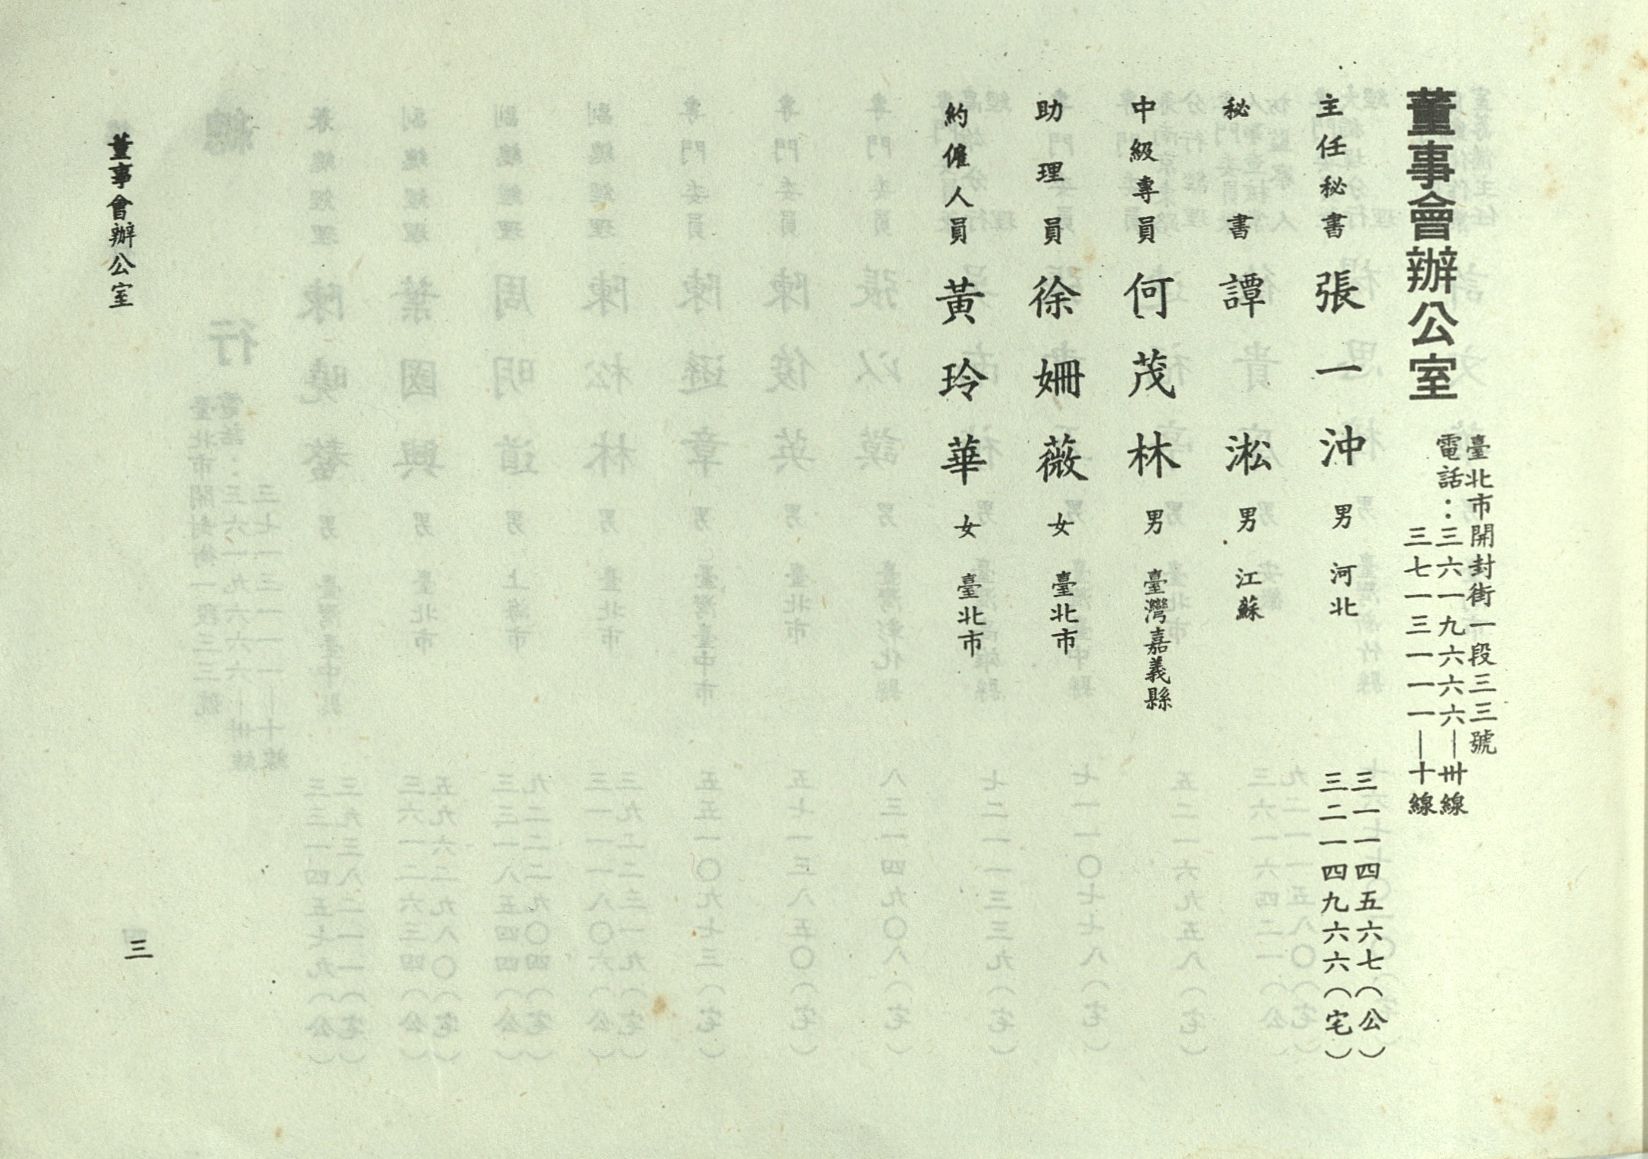 董事會辦公室
臺北市開封街一段三三號
電話：三六一九六六六—卅線
三七一三一一一—十線
主任秘書 張一沖 男 河北 三一一四五六七（公）
三二一四九六六（宅）
秘書 譚淞 男 江蘇
中級專員 何茂林 男 臺灣嘉義縣
助理員 徐姍薇 女 臺北市
約僱人員 黃玲華 女 臺北市
董事會辦公室
三